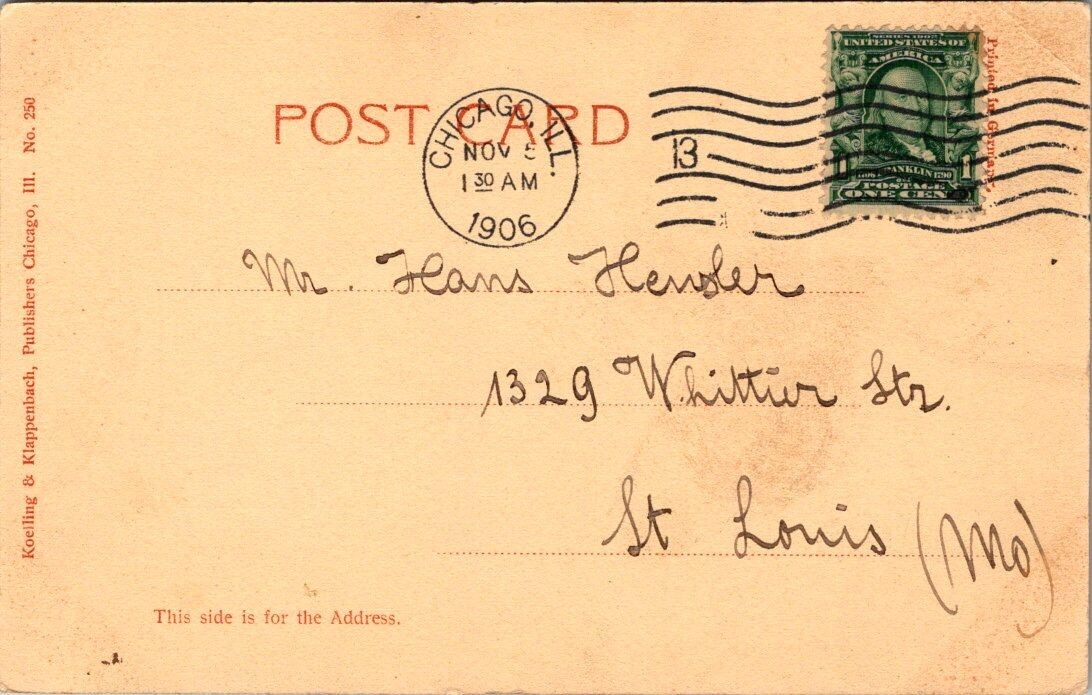 POST CARD
CHICAGO, ILL.
NOV 5
1 30 AM
1906
13
SERIES 1902
UNITED STATES OF
AMERICA
FRANKLIN
POSTAGE
ONE CENT
Printed in Germany.
Koelling & Klappenbach, Publishers Chicago, Ill. No. 250
Mr. Hans
1329 Whittier Str.
St Louis (Mo)
This side is for the Address.